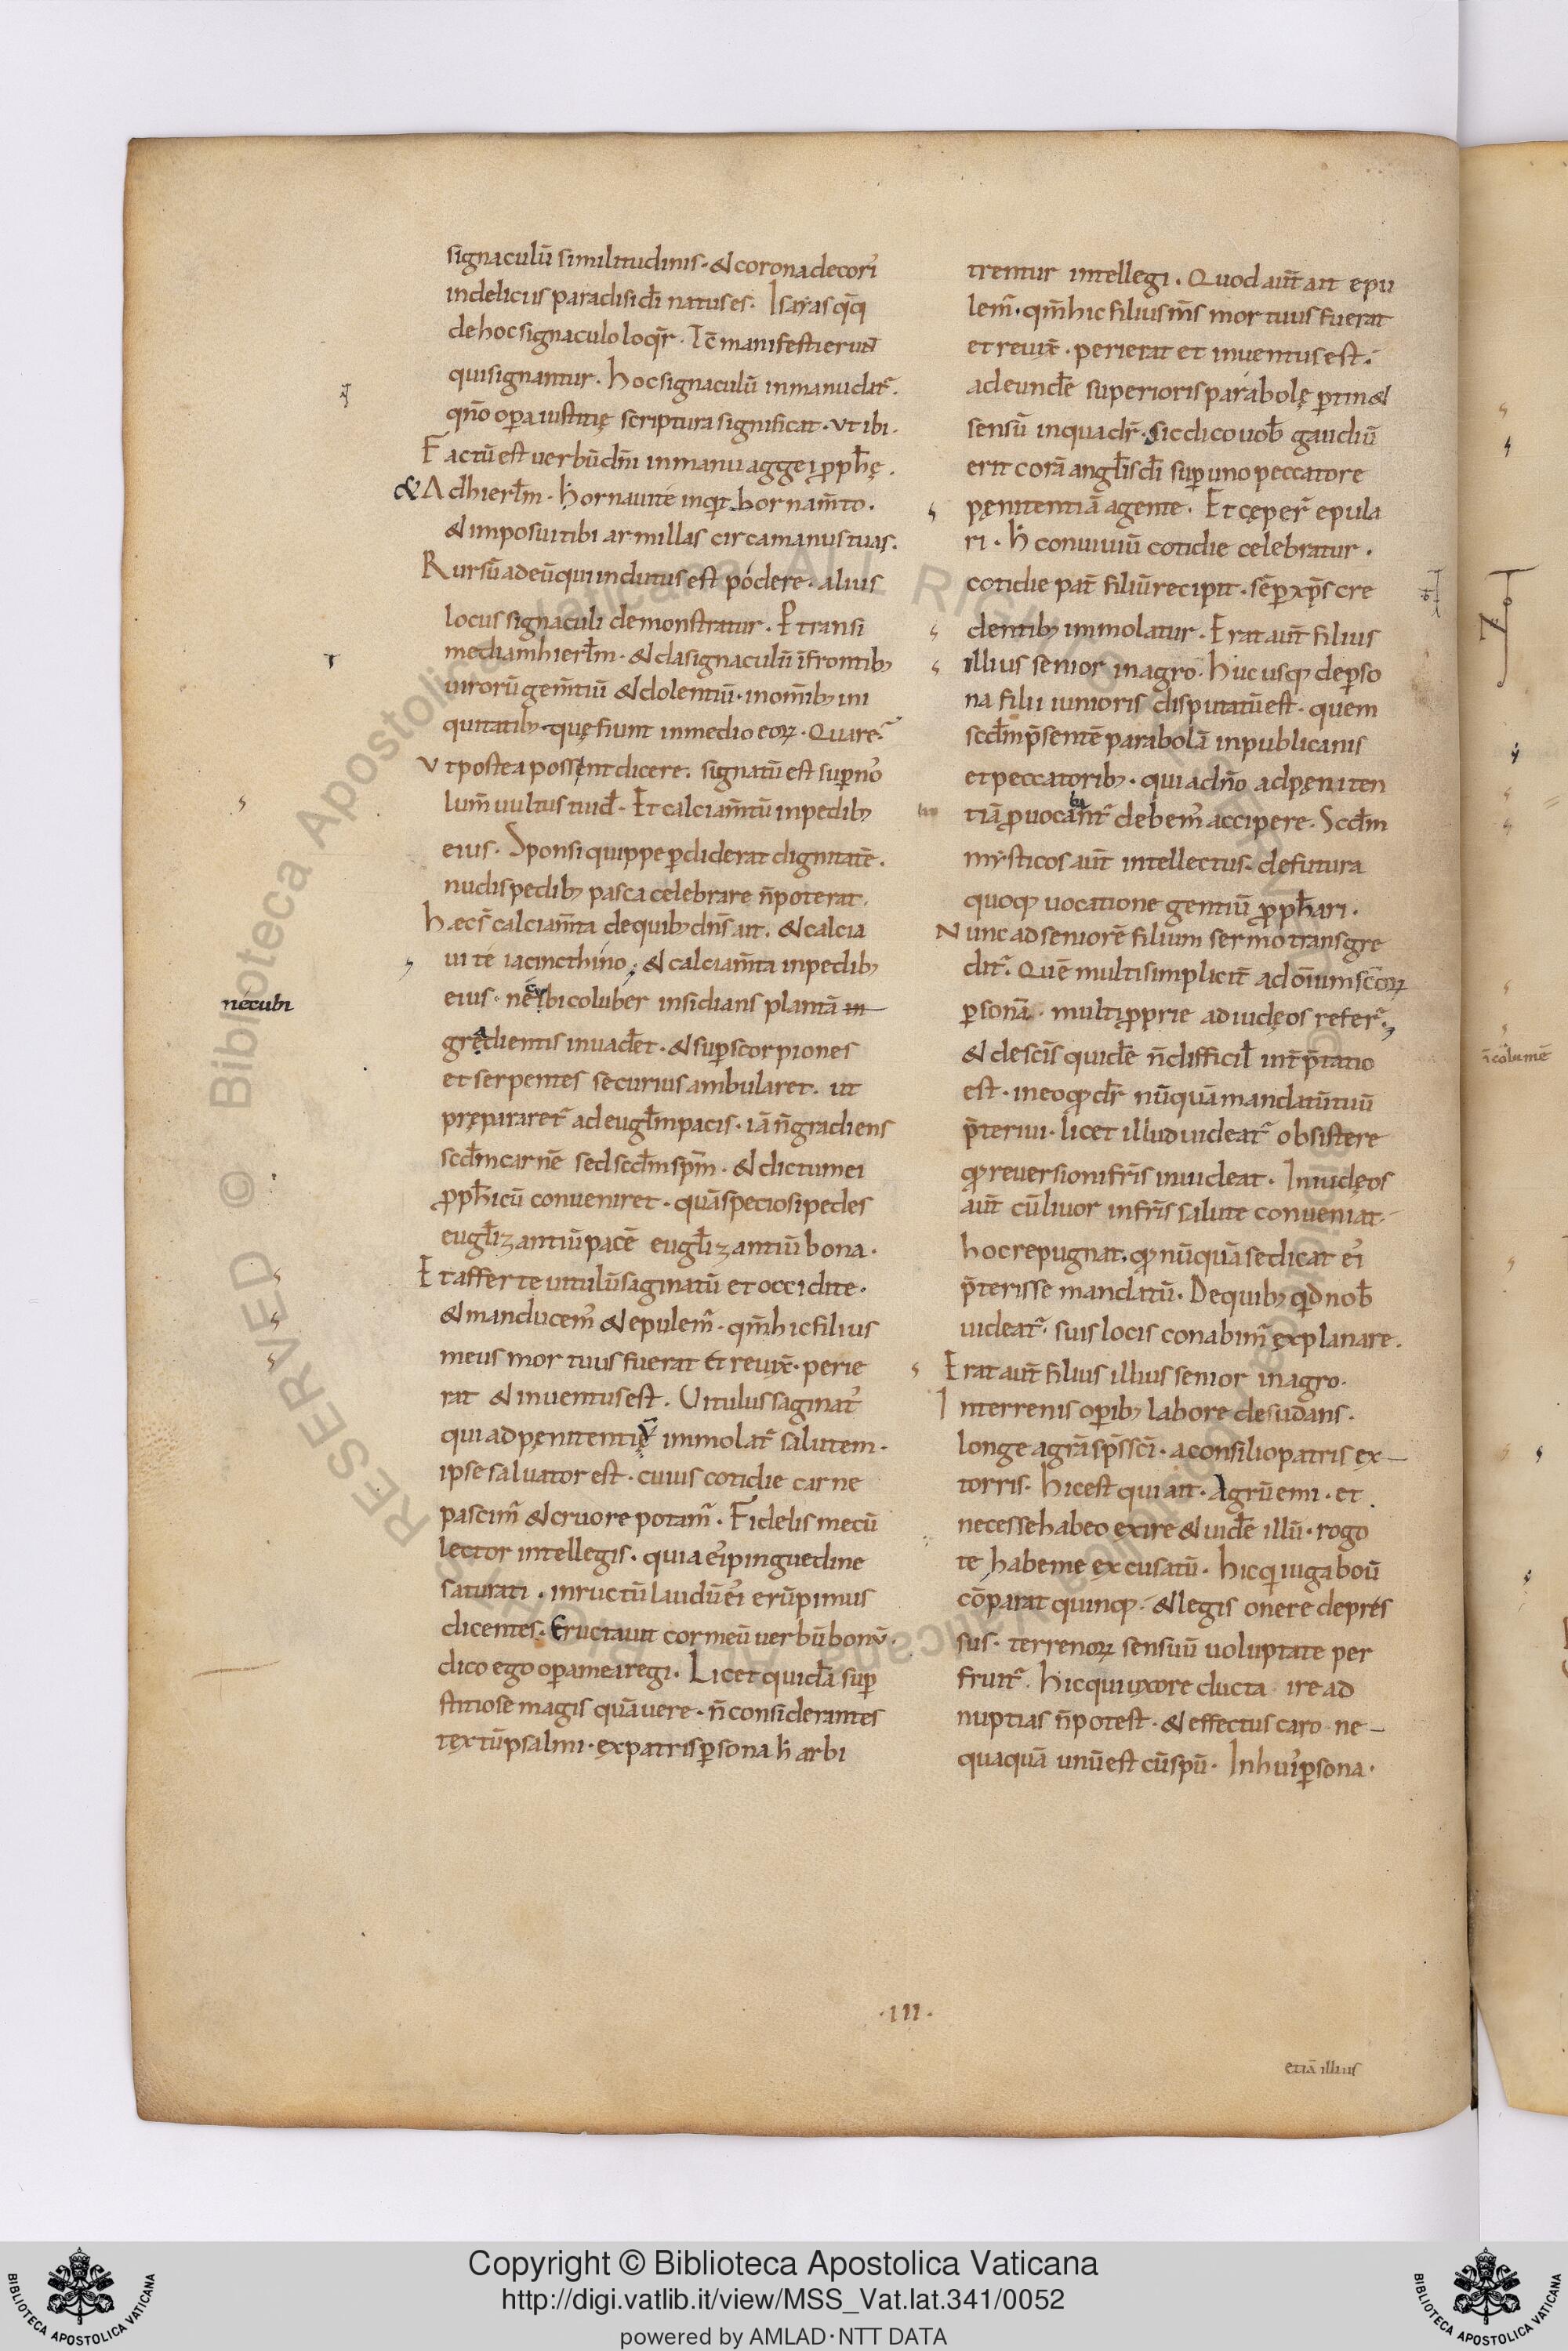 signaculū similitudinis · & corona decori᾽
indeliciis paradisi dī natus es · Isaias q̄q̨
de hoc signaculo loqr̄ · Tc̄ manifesti erunt
qui signantur · hoc signaculū in manu dat᷑
qn̄o oꝑa iustitię scriptura significat · ut ibi ·
Factū est uerbū dn̄i in manu aggei ꝓph̄ę ·
& Ad hierl̄m · hornaui te inqt hornam̄to ·
& imposui tibi armillas circa manus tuas ·
Rursū ad eū qui indutus est podere · alius
locus signaculi demonstratur · Ptransi
mediam hierl̄m · & da signaculū ī frontib;
uirorū gem̄tiū & dolentiū · in om̄ib; ini
quitatib; · quę fiunt in medio eoꝝ · Quare᷑
Ut postea possent dicere · signatū est suꝑ no᾽
lum̄ uultus tui d̄ · Et calciam̄tū in pedib;
eius · Sponsi quippe ꝑdiderat dignitatē ·
nudis pedib; pasca celebrare n̄ poterat ·
Hęc s̄ calciam̄ta de quib; dn̄s ait · & calcia
ui te iacincthino · & calciam̄ta in pedib;
necubi
eius · ne ubi coluber insidians plantā in
gredientis inuaderet · & suꝑ scorpiones
et serpentes securius ambularet · ut
prępararet᷑ ad eugl̄m pacis · iā n̄ gradiens
scd̄m carnē sed scd̄m sp̄m · & dictum ei
ꝓph̄icū conueniret · quā speciosi pedes
eugl̄izantiū pacē eugl̄izantiū bona ·
Et afferte uitulū saginatū et occidite ·
& manducem᾽ & epulem᷑ · qm̄ hic filius
meus mortuus fuerat et reuix̄ · perie
rat & inuentus est · Uitulus saginat᾽
qui ad pęnitentię immolat᷑ salutem ·
ipse saluator est · cuius cotidie carne
pascim᷑ & cruore potam᷑ · Fidelis mecū
lector intellegis · quia ei᾽ pinguedine
saturati · in ructū laudū ei᾽ erūpimus
dicentes · Eructauit cor meū uerbū bonū ·
dico ego oꝑa mea regi · Licet quidā suꝑ
stitiose magis quā uere · n̄ considerantes
textū psalmi · ex patris ꝑsona h̄ arbi
trentur intellegi · Quod aut̄ ait epu
lem᷑ · qm̄ hic filius m̄s mortuus fuerat
et reuix̄ · perierat et inuentus est ·
ad eundē superioris parabolę ꝑtin&
sensū in qua dr̄ · Sic dico uob̄ gaudiū
erit corā angl̄is dī suꝑ uno peccatore
pęnitentiā agente · Et cęper̄ epula
ri · h̄ conuiuiū cotidie celebratur ·
cotidie pat̄ filiū recipit · sēꝑ xp̄s cre
dentib; immolatur · Erat aut̄ filius
illius senior in agro · hucusq; de ꝑso
na filii iunioris disputatū est · quem
scd̄m p̄sentē parabolā in publicanis
et peccatorib; · qui a dn̄o ad pęniten
tiā ꝓuocabant᷑ debem᾽ accipere · Scd̄m
mysticos aut̄ intellectus · de futura
quoq; uocatione gentiū ꝓph̄ari ·
Nunc ad seniorē filium sermo transgre
dit᷑ · Quē multi simplicit̄ ad om̄ium sc̄oꝝ
ꝑsonā · multi ꝓprie ad iudęos refer᷑ ·
& de sc̄is quidē n̄ difficil̄ int̄p̄tatio
est · in eo q; dr̄ nūquā mandatū tuū
p̄teriui · licet illud uideat᷑ obsistere
q; reuersioni fr̄is inuideat · In iudęos
aut̄ cū liuor in fr̄is salute conueniat ·
hoc repugnat · q; nūquā se dicat ei᾽
p̄terisse mandatū · De quib; qd nob̄
uideat᷑ · suis locis conabim᷑ explanare ·
Erat aut̄ filius illius senior in agro ·
In terrenis oꝑib; labore desudans ·
longe a gr̄a sp̄s sc̄i · a consilio patris ex
torris · hic est qui ait · Agrū emi · et
necesse habeo exire & uidē illū · rogo
te habe me excusatū · hic q iuga boū
cōparat quinq; · & legis onere depres
sus · terrenoꝝ sensuū uoluptate per
fruit᷑ · hic qui uxore ducta ire ad
nuptias n̄ potest · & effectus caro · ne
quaquā unū est cū spū · In hui᾽ ꝑsona ·
· III ·
etiā illius
ī colume
© Biblioteca Apostolica Vaticana ALL RIGHTS RESERVED
Copyright © Biblioteca Apostolica Vaticana
http://digi.vatlib.it/view/MSS_Vat.lat.341/0052
powered by AMLAD·NTT DATA
BIBLIOTECA APOSTOLICA VATICANA
BIBLIOTECA APOSTOLICA VATICANA